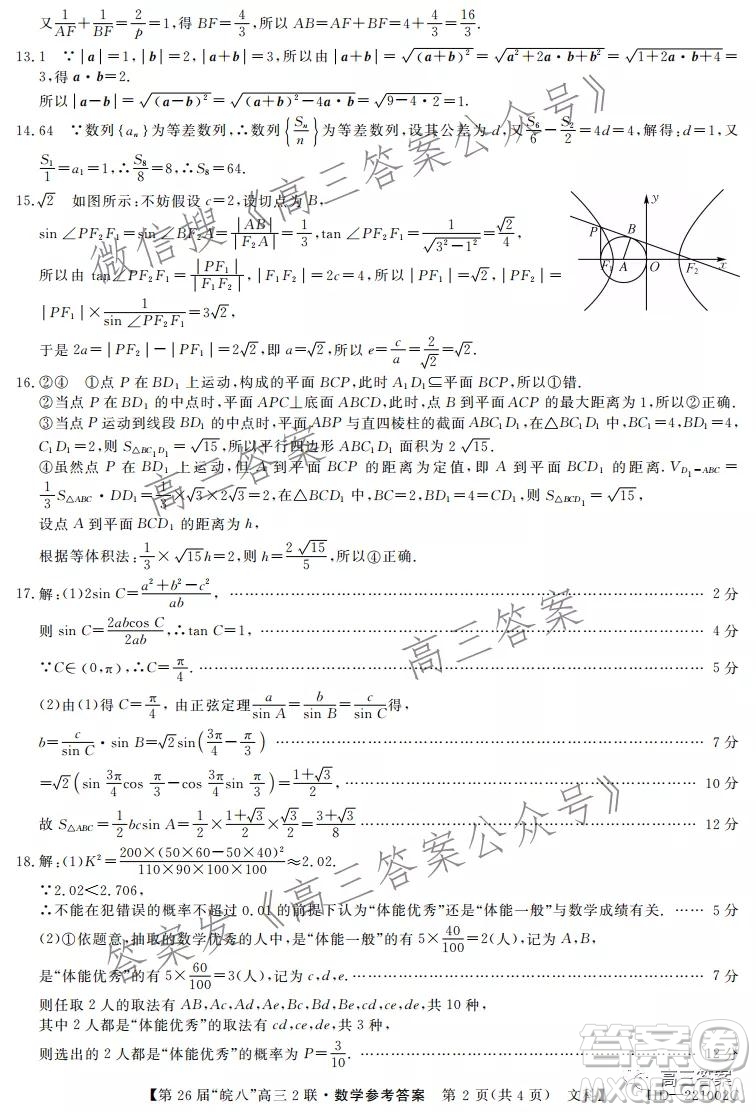 又1/AF+1/BF=2/p=1,得 BF=4/3,所以 AB=AF+BF=4+4/3=16/3.
13.1 ∵|a|=1,|b|=2,|a+b|=3,所以由|a+b|=√(a+b)²=√a²+2a·b+b²=√1+2a·b+4=
3,得 a·b=2.
所以|a−b|=√(a−b)²=√(a+b)²−4a·b=√9−4·2=1.
14.64 ∵数列{aₙ}为等差数列,∴数列{Sₙ/n}为等差数列,设其公差为 d,又S₆/6−S₂/2=4d=4,解得:d=1,又
S₁/1=a₁=1,∴S₈/8=8,∴S₈=64.
15.√2 如图所示:不妨假设 c=2,设切点为 B,
sin∠PF₂F₁=sin∠BF₂A=|AB|/|F₂A|=1/3,tan∠PF₂F₁=1/√3²−1²=√2/4,
所以由 tan∠PF₂F₁=|PF₁|/|F₁F₂|,|F₁F₂|=2c=4,所以|PF₁|=√2,|PF₂|=
|PF₁|×1/sin∠PF₂F₁=3√2,
于是 2a=|PF₂|−|PF₁|=2√2,即 a=√2,所以 e=c/a=2/√2=√2.
y
P
B
F₁
A
O
F₂
x
16.②④ ①点 P 在 BD₁ 上运动,构成的平面 BCP,此时 A₁D₁⊆平面 BCP,所以①错.
②当点 P 在 BD₁ 的中点时,平面 APC⊥底面 ABCD,此时,点 B 到平面 ACP 的最大距离为 1,所以②正确.
③当点 P 运动到线段 BD₁ 的中点时,平面 ABP 与直四棱柱的截面为平行四边形 ABC₁D₁,在△BC₁D₁ 中,BC₁=4,BD₁=4,
C₁D₁=2,则 S△BC₁D₁=√15,所以平行四边形 ABC₁D₁ 面积为 2√15.
④虽然点 P 在 BD₁ 上运动,但 A 到平面 BCP 的距离为定值,即 A 到平面 BCD₁ 的距离.V D₁−ABC=
1/3S△ABC·DD₁=1/3×√3×2√3=2,在△BCD₁ 中,BC=2,BD₁=4,CD₁=4,则 S△BCD₁=√15,
设点 A 到平面 BCD₁ 的距离为 h,
根据等体积法:1/3×√15h=2,则 h=2√15/5,所以④正确.
17.解:(1)2sin C=a²+b²−c²/ab, …… 2 分
则 sin C=2abcos C/2ab,∴tan C=1, …… 4 分
∵C∈(0,π),∴C=π/4. …… 5 分
(2)由(1)得 C=π/4, 由正弦定理a/sin A=b/sin B=c/sin C得,
b=c/sin C·sin B=√2sin(3π/4−π/3) …… 7 分
=√2(sin 3π/4cos π/3−cos 3π/4sin π/3)=1+√3/2, …… 10 分
故 S△ABC=1/2bcsin A=1/2×1+√3/2×√3/2=3+√3/8 …… 12 分
18.解:(1)K²=200×(50×60−50×40)²/110×90×100×100≈2.02.
∵2.02<2.706,
∴不能在犯错误的概率不超过 0.01 的前提下认为“体能优秀”还是“体能一般”与数学成绩有关. …… 5 分
(2)①依题意,抽取的数学优秀的人中,是“体能一般”的有 5×40/100=2(人),记为 A,B,
是“体能优秀”的有 5×60/100=3(人),记为 c,d,e. …… 7 分
则任取 2 人的取法有 AB,Ac,Ad,Ae,Bc,Bd,Be,cd,ce,de,共 10 种,
其中 2 人都是“体能优秀”的取法有 cd,ce,de,共 3 种,
则选出的 2 人都是“体能优秀”的概率为 P=3/10. …… 12 分
【第 26 届“皖八”高三 2 联·数学参考答案 第 2 页(共 4 页) 文科】 HD−221002C
微信搜《高三答案公众号》
高三答案
高三答案
答案发《高三答案公众号》
答案卷
高三答案